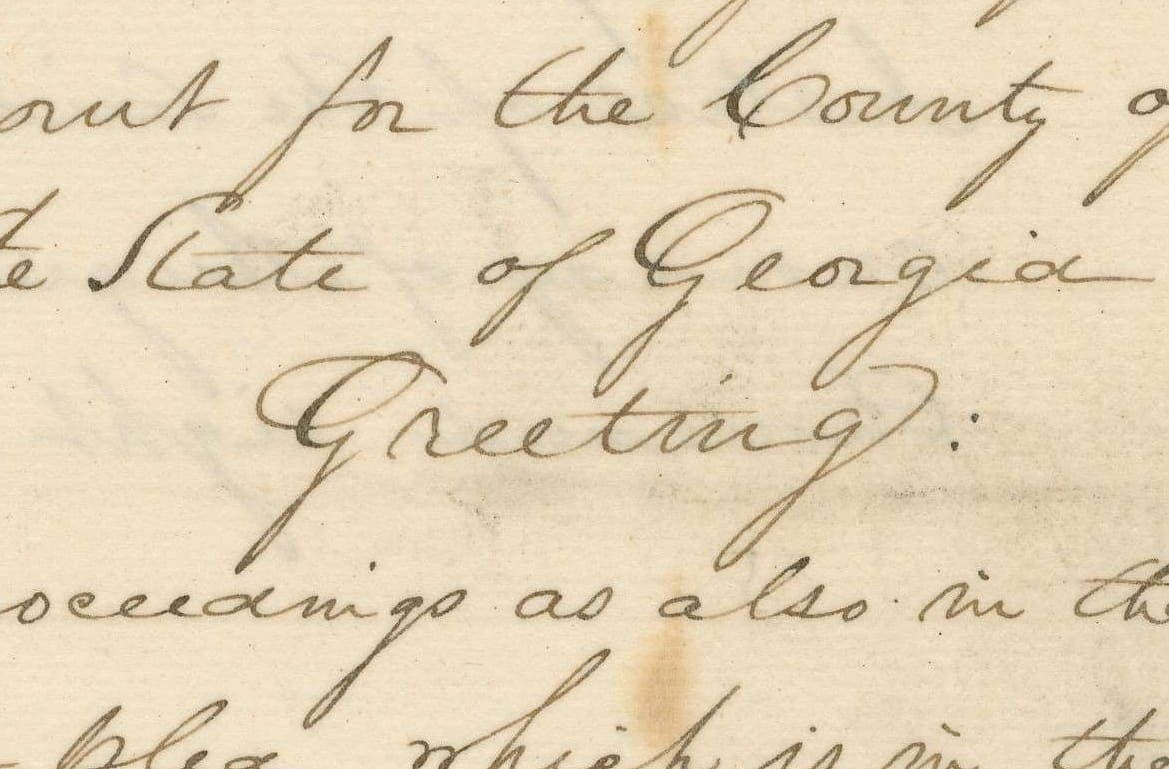 ourt for the County of
te State of Georgia
Greeting:
oceedings as also in the
plea which is in the